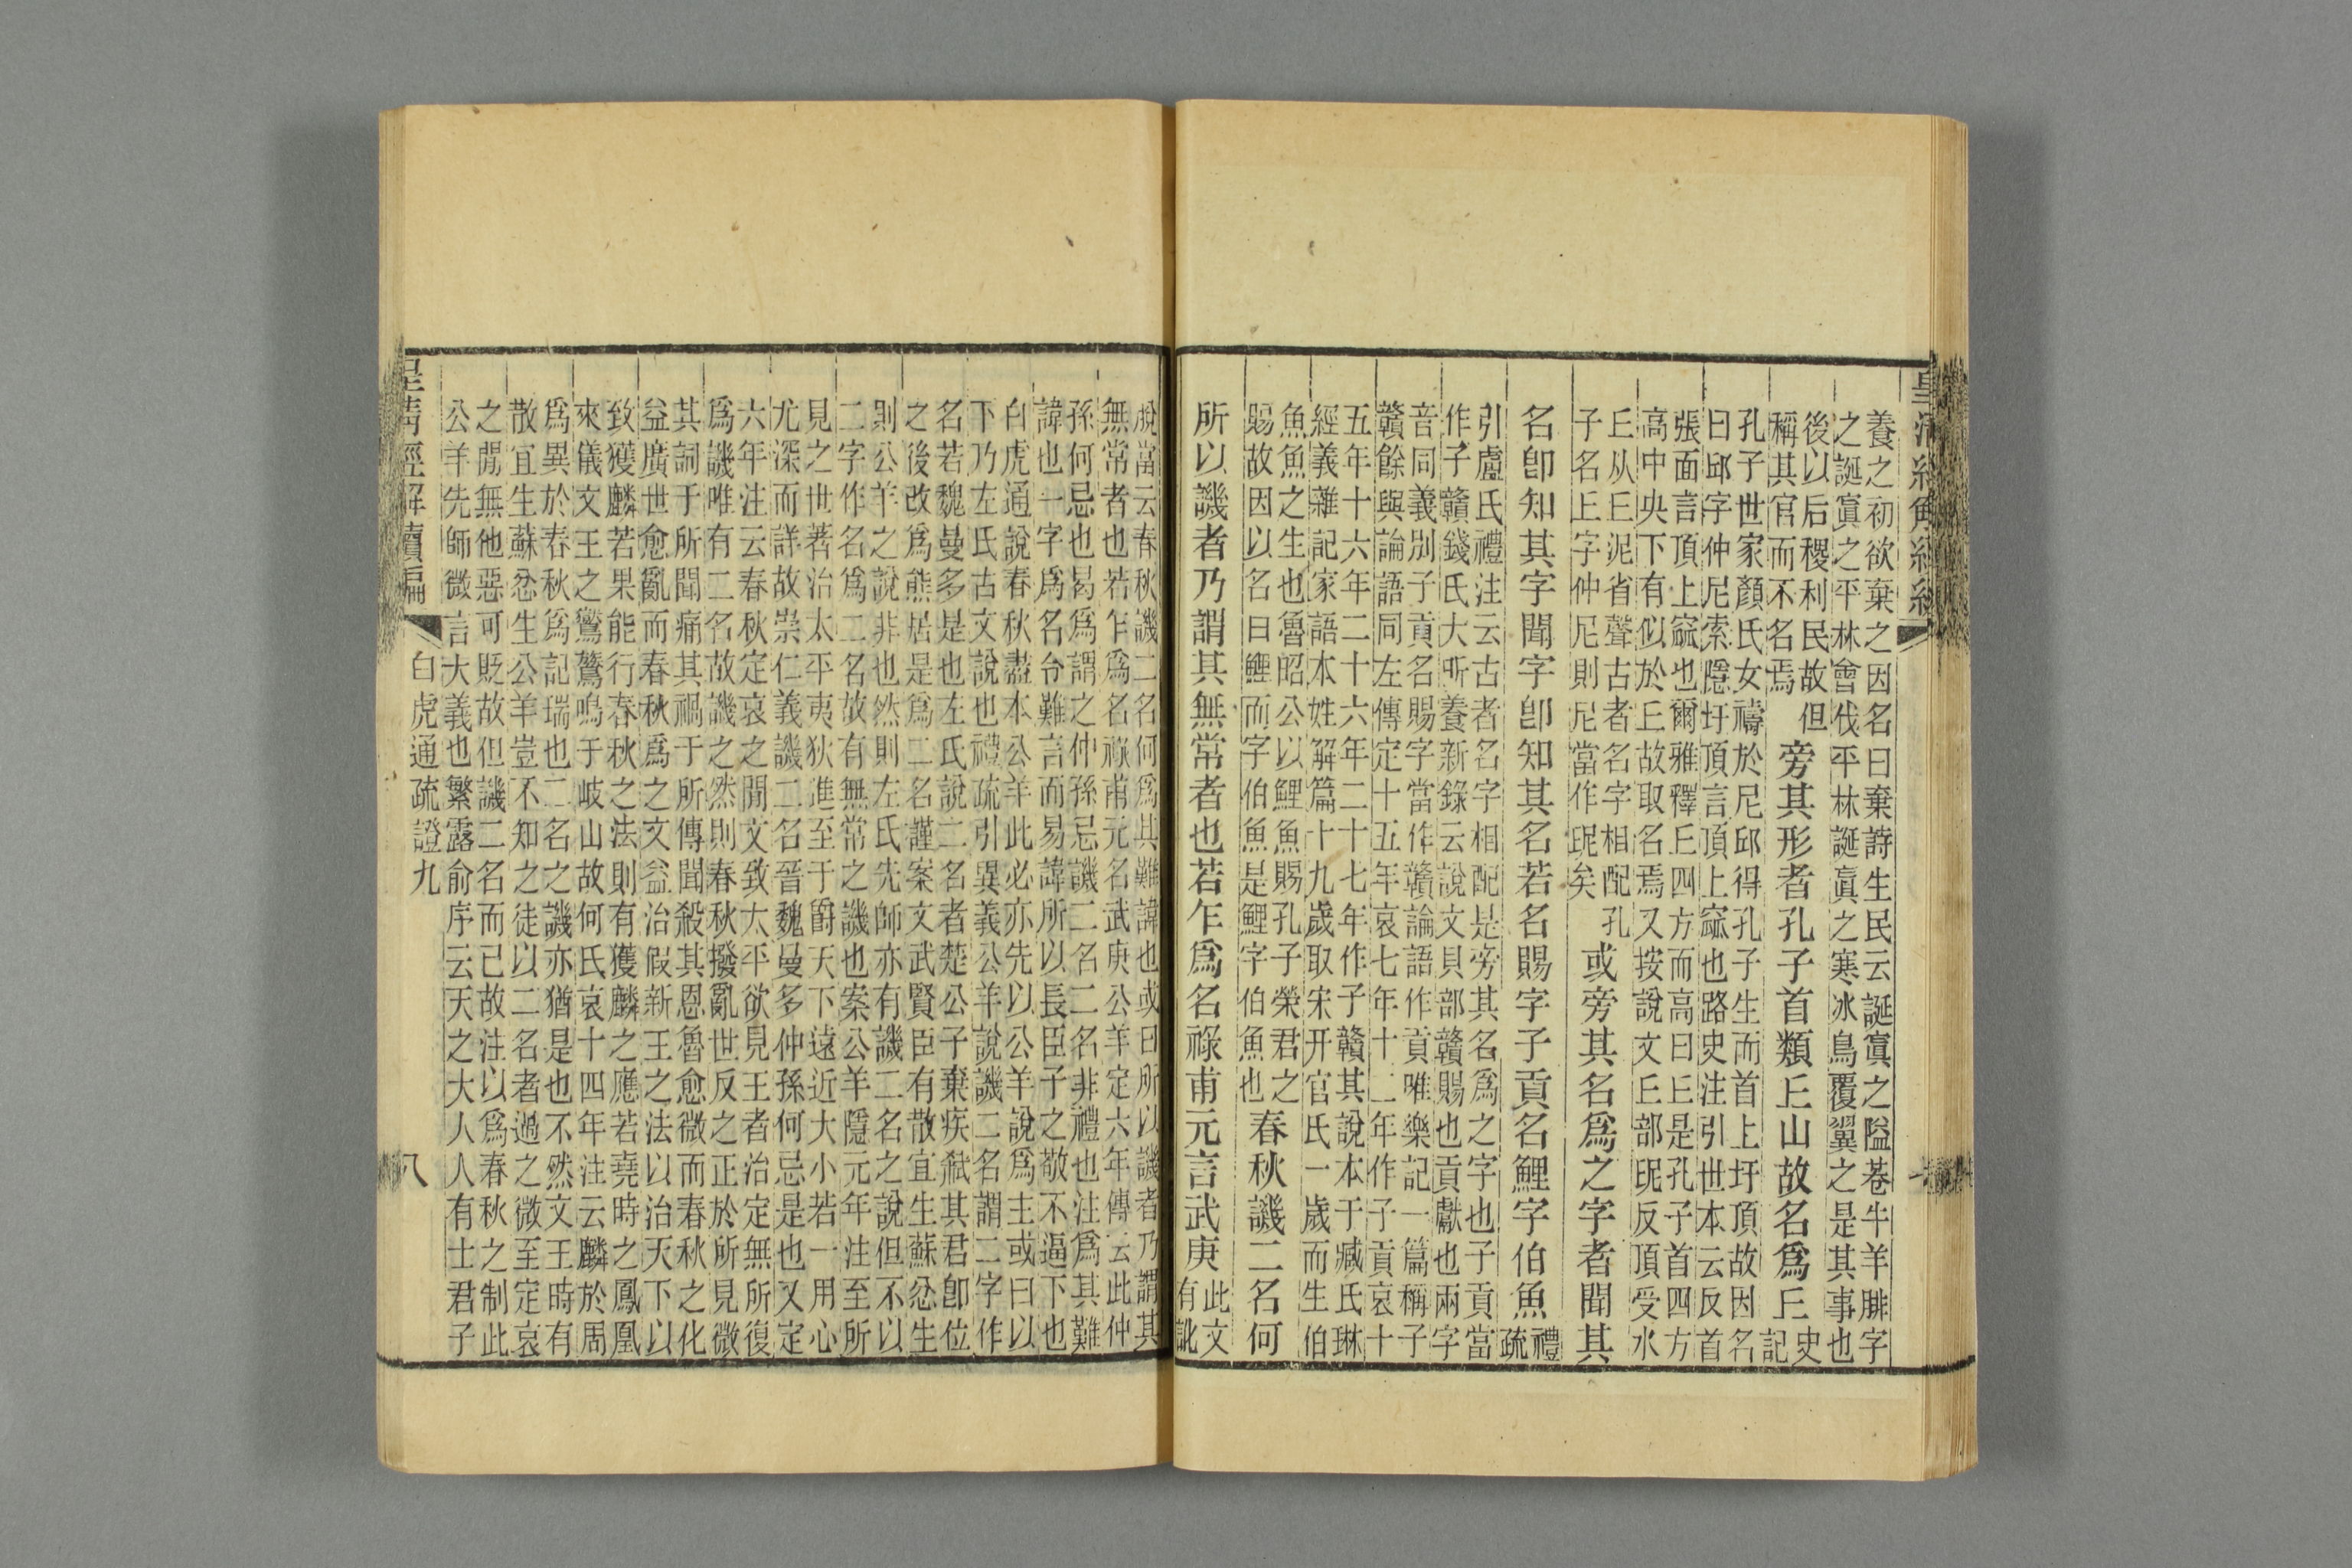 養之初欲棄之因名曰棄詩生民云誕寘之隘巷牛羊腓字
之誕寘之平林會伐平林誕寘之寒冰鳥覆翼之是其事也
後以后稷利民故但
稱其官而不名焉
旁其形者孔子首類㐀山故名為㐀
史
記
孔子世家顏氏女禱於尼邱得孔子生而首上圩頂故因名
曰邱字仲尼索隱圩頂言頂上窳也路史注引世本云反首
張面言頂上窳也爾雅釋㐀四方而高曰㐀是孔子首四方
高中央下有似於㐀故取名焉又按說文㐀部𡰥反頂受水
㐀从㐀泥省聲古者名字相配孔
子名㐀字仲尼則尼當作𡰥矣
或旁其名為之字者聞其
名卽知其字聞字卽知其名若名賜字子貢名鯉字伯魚
禮
疏
引盧氏禮注云古者名字相配是旁其名為之字也子貢當
作子贛錢氏大昕養新錄云說文貝部贛賜也貢獻也兩字
音同義別子貢名賜字當作贛論語作貢唯樂記一篇稱子
贛餘與論語同左傳定十五年哀七年十二年作子貢哀十
五年十六年二十六年二十七年作子贛其說本于臧氏琳
經義雜記家語本姓解篇十九歲取宋幵官氏一歲而生伯
魚魚之生也魯昭公以鯉魚賜孔子榮君之
賜故因以名曰鯉而字伯魚是鯉字伯魚也
春秋譏二名何
所以譏者乃謂其無常者也若乍為名祿甫元言武庚
此文
有訛
脫當云春秋譏二名何為其難諱也或曰所以譏者乃謂其
無常者也若乍為名祿甫元名武庚公羊定六年傳云此仲
孫何忌也曷為謂之仲孫忌譏二名二名非禮也注為其難
諱也一字為名令難言而易諱所以長臣子之敬不逼下也
白虎通說春秋盡本公羊此必亦先以公羊說為主或曰以
下乃左氏古文說也禮疏引異義公羊說譏二名謂二字作
名若魏曼多是也左氏說二名者楚公子棄疾弒其君卽位
之後改為熊居是為二名謹案文武賢臣有散宜生蘇忿生
則公羊之說非也然則左氏先師亦有譏二名之說但不以
二字作名為二名故有無常之譏也案公羊隱元年注至所
見之世著治太平夷狄進至于爵天下遠近大小若一用心
尤深而詳故崇仁義譏二名晉魏曼多仲孫何忌是也又定
六年注云春秋定哀之閒文致太平欲見王者治定無所復
為譏唯有二名故譏之然則春秋撥亂世反之正於所見微
其詞于所聞痛其禍于所傳聞殺其恩魯愈微而春秋之化
益廣世愈亂而春秋為之文益治假新王之法以治天下以
致獲麟若果能行春秋之法則有獲麟之應若堯時之鳳凰
來儀文王之鸑鷟鳴于岐山故何氏哀十四年注云麟於周
為異於春秋為記瑞也二名之譏亦猶是也不然文王時有
散宜生蘇忿生公羊豈不知之徒以二名者過之微至定哀
之閒無他惡可貶故但譏二名而已故注以為春秋之制此
公羊先師微言大義也繁露俞序云天之大人人有士君子
皇清經解續編
白虎通疏證九
八